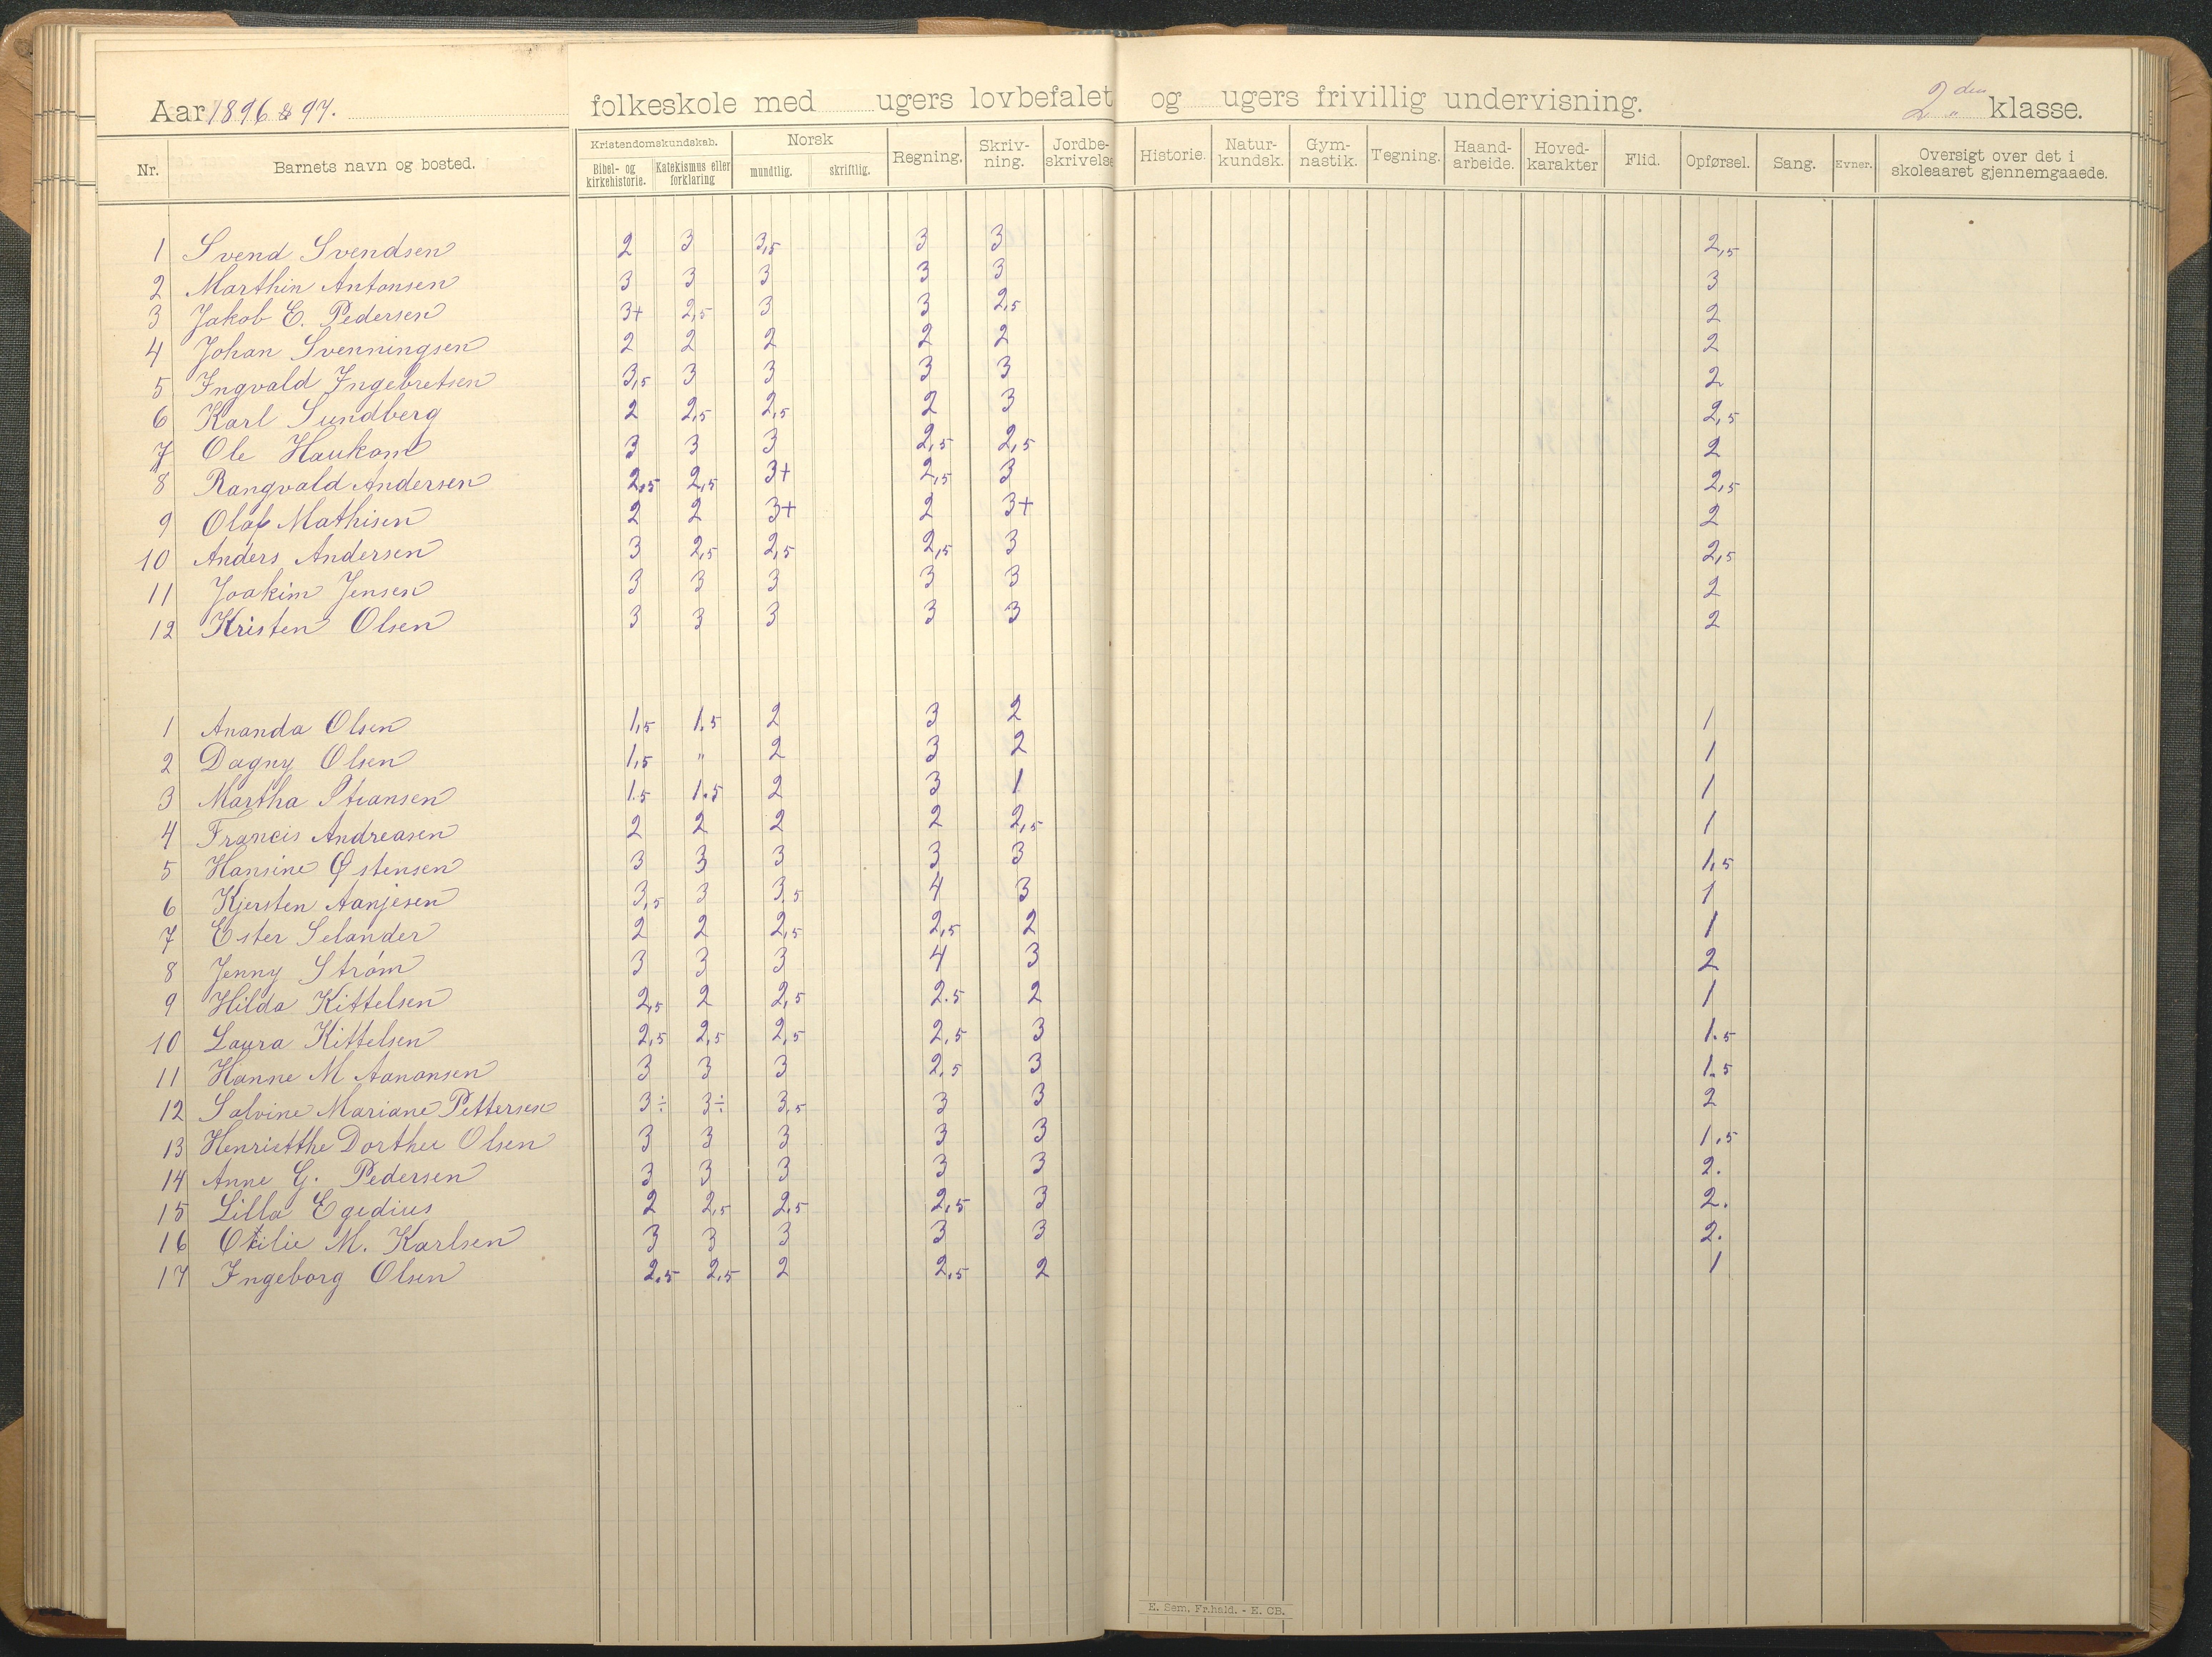 Aar 1896 & 97. folkeskole med ugers lovbefalet og ugers frivillig undervisning. 2den klasse.
Nr. Barnets navn og bosted. Kristendomskundskab. Bibel- og kirkehistorie. Katekismus eller forklaring Norsk mundtlig. skriftlig. Regning. Skriv-ning. Jordbe-skrivelse Historie. Natur-kundsk. Gym-nastik. Tegning. Haand-arbeide. Hoved-karakter Flid. Opførsel. Sang. Evner. Oversigt over det i skoleaaret gjennemgaaede.
1 Svend Svendsen 2 3 3,5 3 3 2,5
2 Marthin Antonsen 3 3 3 3 3 3
3 Jakob E. Pedersen 3+ 2,5 3 3 2,5 2
4 Johan Svenningsen 2 2 2 2 2 2
5 Ingvald Ingebretsen 3,5 3 3 3 3 2
6 Karl Sundberg 2 2,5 2,5 2 3 2,5
7 Ole Haukom 3 3 3 2,5 2,5 2
8 Rangvald Andersen 2,5 2,5 3+ 2,5 3 2,5
9 Olaf Mathisen 2 2 3+ 2 3+ 2
10 Anders Andersen 3 2,5 2,5 2,5 3 2,5
11 Joakim Jensen 3 3 3 3 3 2
12 Kristen Olsen 3 3 3 3 3 2
1 Ananda Olsen 1,5 1.5 2 3 2 1
2 Dagny Olsen 1,5 " 2 3 2 1
3 Martha Stiansen 1.5 1.5 2 3 1 1
4 Francis Andreasen 2 2 2 2 2,5 1
5 Hansine Østensen 3 3 3 3 3 1,5
6 Kjersten Aanjesen 3,5 3 3,5 4 3 1
7 Ester Selander 2 2 2,5 2,5 2 1
8 Jenny Strøm 3 3 3 4 3 2
9 Hilda Kittelsen 2,5 2 2,5 2.5 2 1
10 Laura Kittelsen 2,5 2,5 2,5 2,5 3 1.5
11 Hanne M Aanonsen 3 3 3 2,5 3 1.5
12 Salvine Mariane Pettersen 3÷ 3÷ 3,5 3 3 2
13 Henristthe Dorthee Olsen 3 3 3 3 3 1.5
14 Anne G. Pedersen 3 3 3 3 3 2.
15 Lilla Egedius 2 2,5 2,5 2,5 3 2.
16 Otilie M. Karlsen 3 3 3 3 3 2.
17 Ingeborg Olsen 2.5 2.5 2 2,5 2 1
E. Sem. Fr.hald. - E. CB.